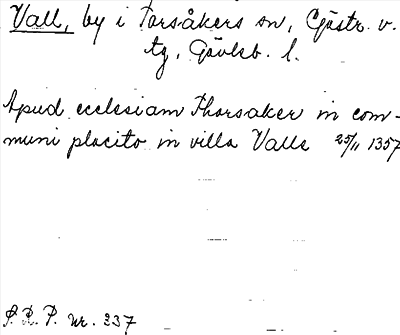 Vall, by i Torsåkers sn, Gästr. v.
tg, Gävleb. l.
Apud ecclesiam Thorsaker in com-
muni placito in villa Valle 25/11 1357
S. R. P. nr. 337